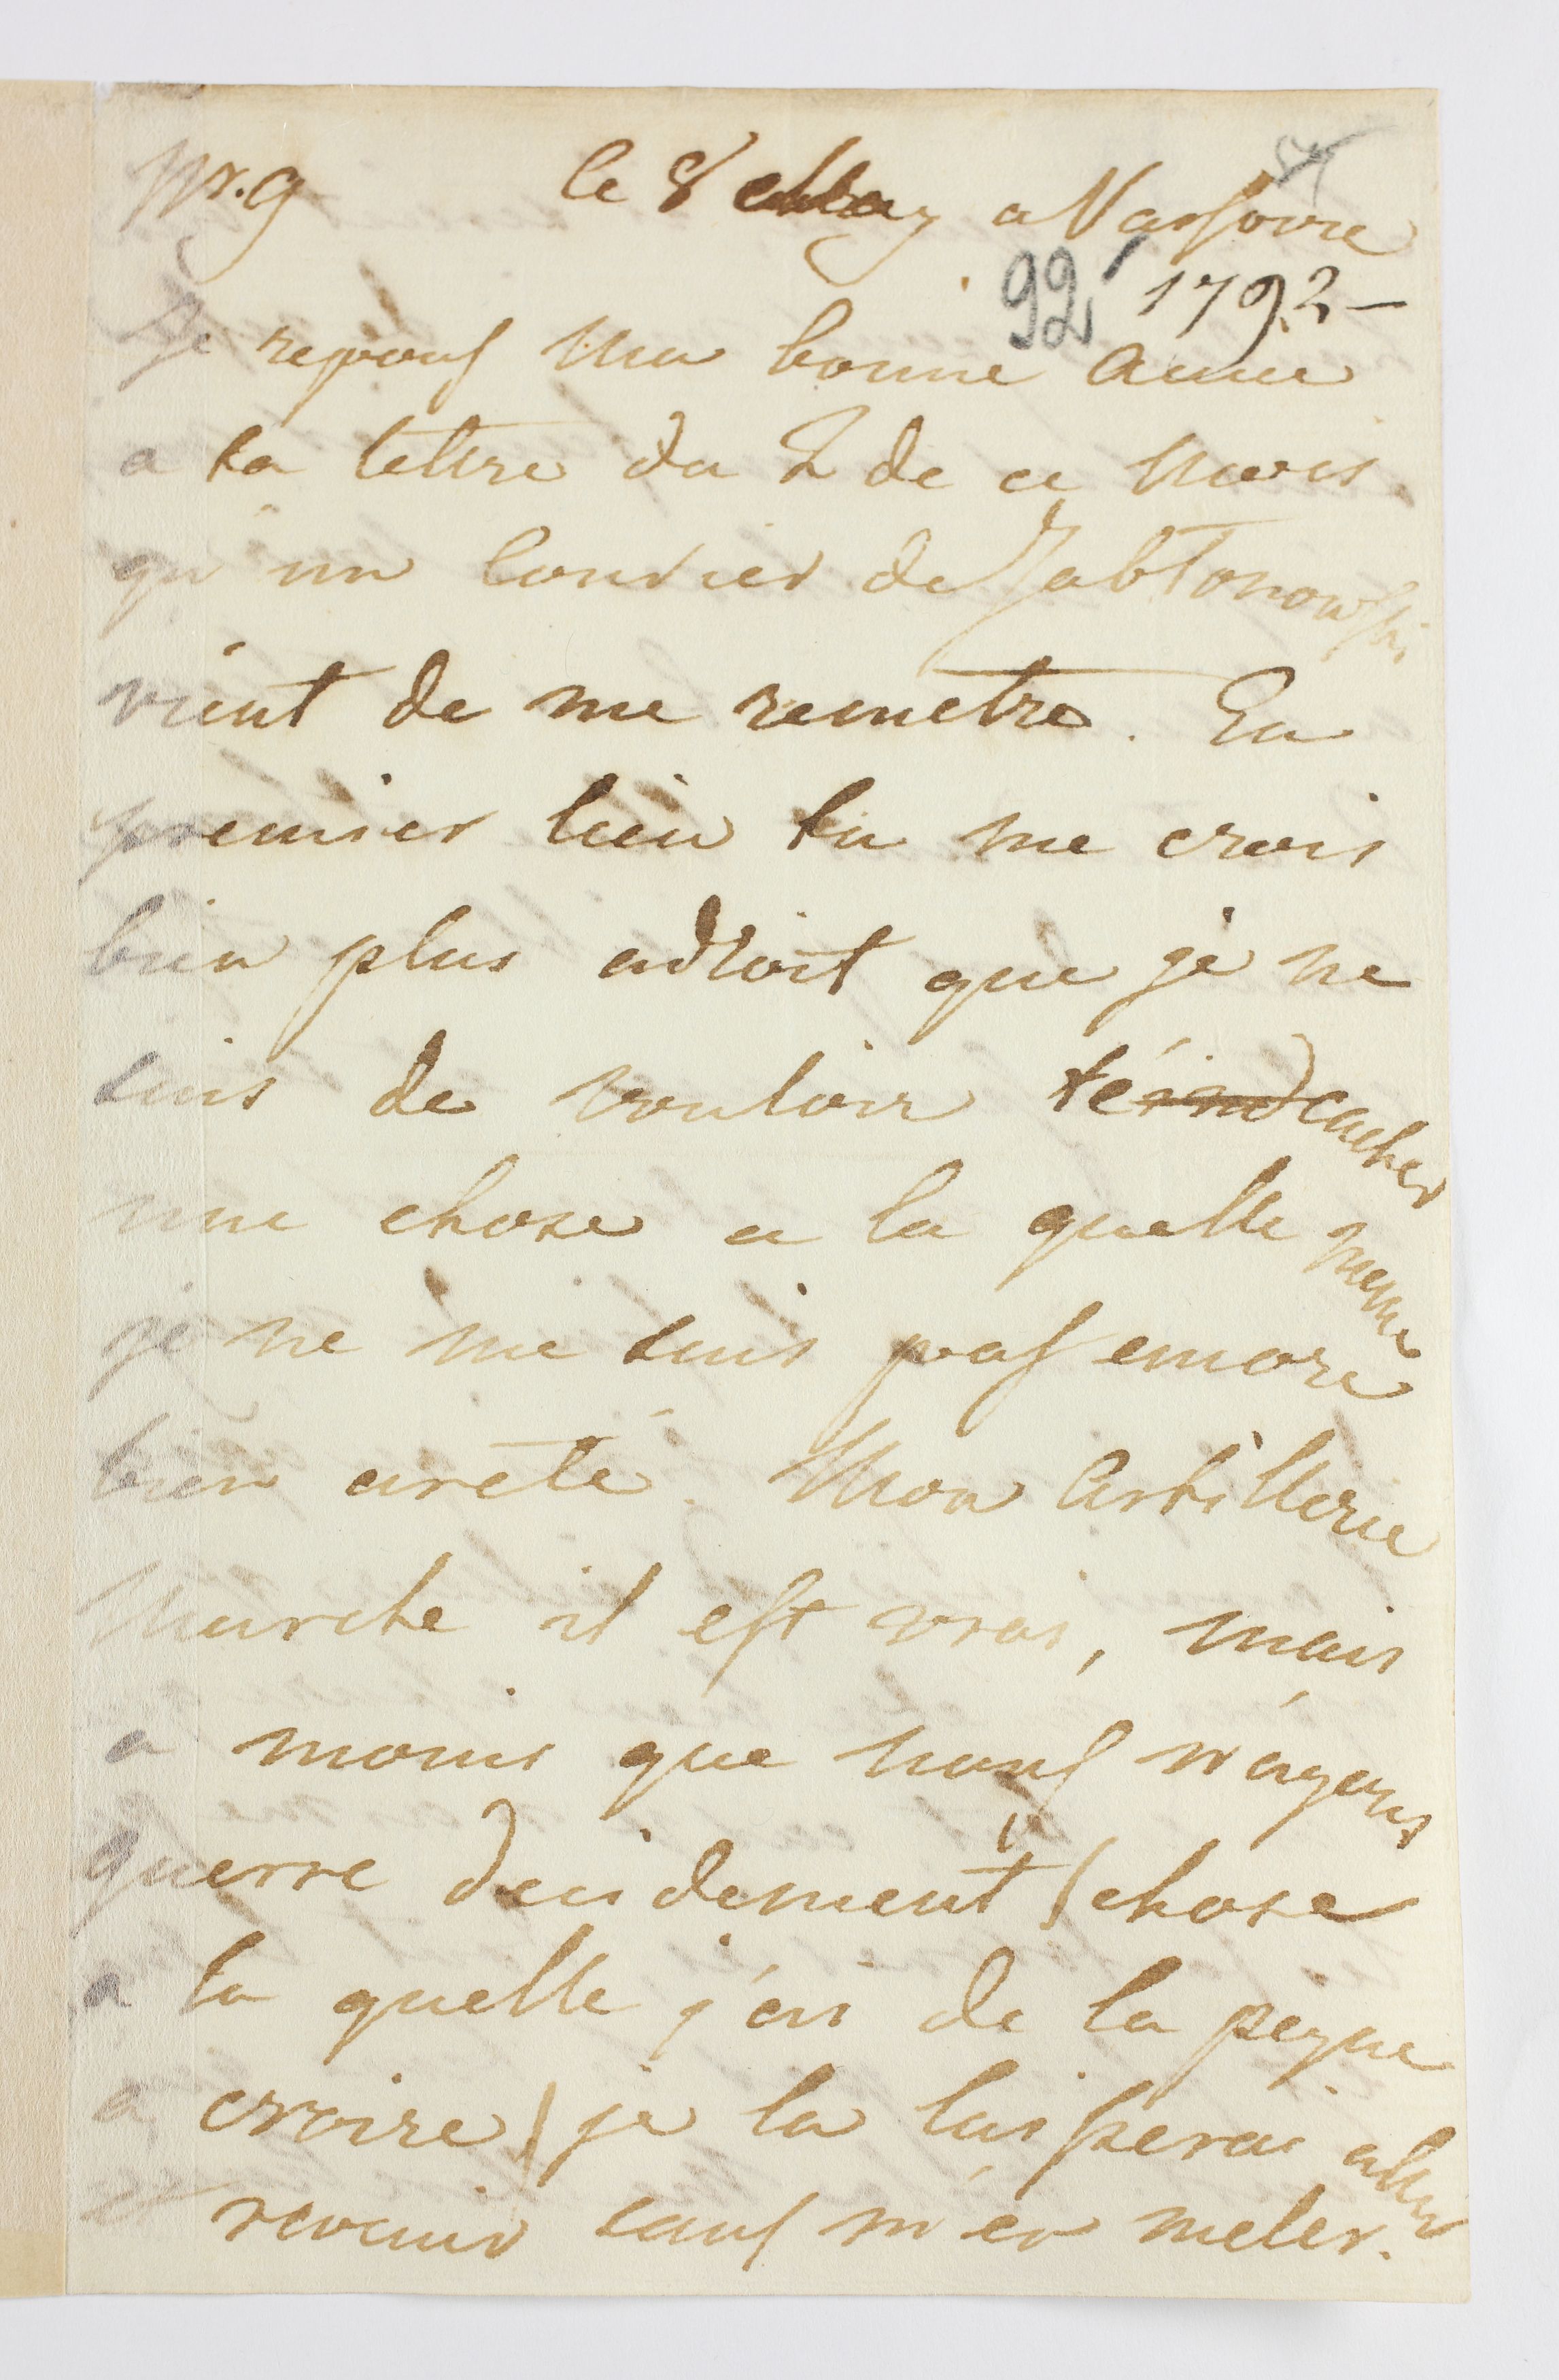 Nr. 9 le 8 May a Varsovie
92 1792 –
Je repons Ma bonne Amie
a ta lettre du 2 de ce Mois
qu'un Courier de Jabłonowski
vient de me remetre. En
premier lieu tu me crois
bien plus adroit que je ne
suis de vouloir te cacher
une chose a la quelle meme
je ne me suis pas encore
bien areté. Mon Artillerie
Marche il est vrai, mais
a moins que nous n'ayons
guerre decidement (chose
a la quelle j'ai de la peyne
a croire) je la laisserai aller
et revenir sans m'en meler.